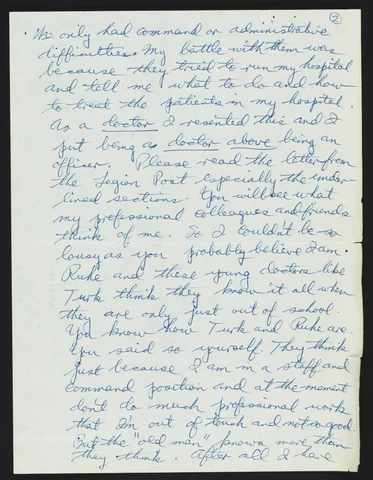 ②
We only had command or administrative
difficulties. My battle with them was
because they tried to run my hospital
and tell me what to do and how
to treat the patients in my hospital.
As a doctor I resented this and I
put being a doctor above being an
officer. Please read the letter from
the Legion Post especially the under-
lined sections. You will see what
my professional colleagues and friends
think of me. So I couldn't be so
lousy as you probably believe I am.
Ruhe and these young doctors like
Turk think they know it all when
they are only just out of school.
You know how Turk and Ruhe are.
You said so yourself. They think
just because I am in a staff and
command position and at the moment
don't do much professional work
that Im out of touch and not so good.
But the "old man" knows more than
they think. After all I have